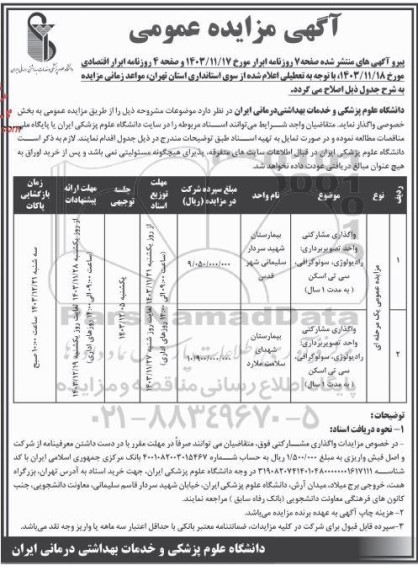 آگهی مزایده عمومی
پیرو آگهی های منتشر شده صفحه ۷ روزنامه ابرار مورخ ۱۴۰۳/۱۱/۱۷ و صفحه ۴ روزنامه ابرار اقتصادی
مورخ ۱۴۰۳/۱۱/۱۸، با توجه به تعطیلی اعلام شده از سوی استانداری استان تهران، مواعد زمانی مزایده
به شرح جدول ذیل اصلاح می گردد.
دانشگاه علوم پزشکی و خدمات بهداشتی درمانی ایران در نظر دارد موضوعات مشروحه ذیل را از طریق مزایده عمومی به بخش
خصوصی واگذار نماید. متقاضیان واجد شرایط می‌توانند اسناد مربوطه را در سایت دانشگاه علوم پزشکی ایران یا پایگاه ملی
مناقصات مطالعه نموده و در صورت تمایل به تهیه اسناد طبق توضیحات مندرج در ذیل جدول اقدام نمایند. لازم به ذکر است
دانشگاه علوم پزشکی ایران در قبال اطلاعات سایت های متفرقه، پذیرای هیچگونه مسئولیتی نمی باشد و پس از خرید اوراق به
هیچ عنوان مبالغ دریافتی عودت داده نخواهد شد.
ردیف
نوع
موضوع
نام واحد
مبلغ سپرده شرکت در مزایده (ریال)
مهلت توزیع اسناد
جلسه توجیهی
مهلت ارائه پیشنهادات
زمان بازگشایی پاکات
۱
مزایده عمومی یک مرحله ای
واگذاری مشارکتی
واحد تصویربرداری:
رادیولوژی، سونوگرافی،
سی تی اسکن
( به مدت ۱ سال)
بیمارستان
شهید سردار
سلیمانی شهر
قدس
۹/۰۵۰/۰۰۰/۰۰۰
۲
واگذاری مشارکتی
واحد تصویربرداری:
رادیولوژی، سونوگرافی،
سی تی اسکن
( به مدت ۱ سال)
بیمارستان
شهدای
سلامت ملارد
۱۰/۹۰۰/۰۰۰/۰۰۰
از روز یکشنبه ۱۴۰۳/۱۱/۲۱ لغایت روز شنبه ۱۴۰۳/۱۱/۲۷
(ساعت ۰۹:۰۰ الی ۱۴:۰۰ روزهای اداری)
یکشنبه ۱۴۰۳/۱۲/۰۵
از روز یکشنبه ۱۴۰۳/۱۱/۲۸ لغایت روز یکشنبه ۱۴۰۳/۱۲/۱۹
(ساعت ۰۹:۰۰ الی ۱۴:۰۰ روزهای اداری)
سه شنبه ۱۴۰۳/۱۲/۲۱ ساعت ۱۰:۰۰ صبح
ParsNamadData
پایگاه اطلاع رسانی مناقصه و مزایده
۰۲۱-۸۸۳۴۹۶۷۰-۵
توضیحات:
۱- نحوه دریافت اسناد:
- در خصوص مزایدات واگذاری مشارکتی فوق، متقاضیان می توانند صرفاً در مهلت مقرر با در دست داشتن معرفینامه از شرکت
و اصل فیش واریزی به مبلغ ۱/۵۰۰/۰۰۰ ریال به حساب شماره ۴۰۰۱۰۸۲۰۰۳۰۱۵۴۶۷ بانک مرکزی جمهوری اسلامی ایران با کد
شناسه ۳۱۹۰۸۲۰۷۴۱۴۰۱۰۴۸۰۰۰۰۰۰۰۱۶۱۷۱۱۱ در وجه دانشگاه علوم پزشکی ایران، جهت خرید اسناد به آدرس تهران، بزرگراه
همت، خروجی برج میلاد، میدان آرش، دانشگاه علوم پزشکی ایران، خیابان شهید سردار قاسم سلیمانی، معاونت دانشجویی، جنب
کانون های فرهنگی معاونت دانشجویی (بانک رفاه سابق ) مراجعه نمایند.
۲- هزینه چاپ آگهی به عهده برنده مزایده می‌باشد.
۳-سپرده قابل قبول برای شرکت در کلیه مزایدات، ضمانتنامه معتبر بانکی با حداقل اعتبار سه ماهه یا واریز وجه نقد می‌باشد.
دانشگاه علوم پزشکی و خدمات بهداشتی درمانی ایران